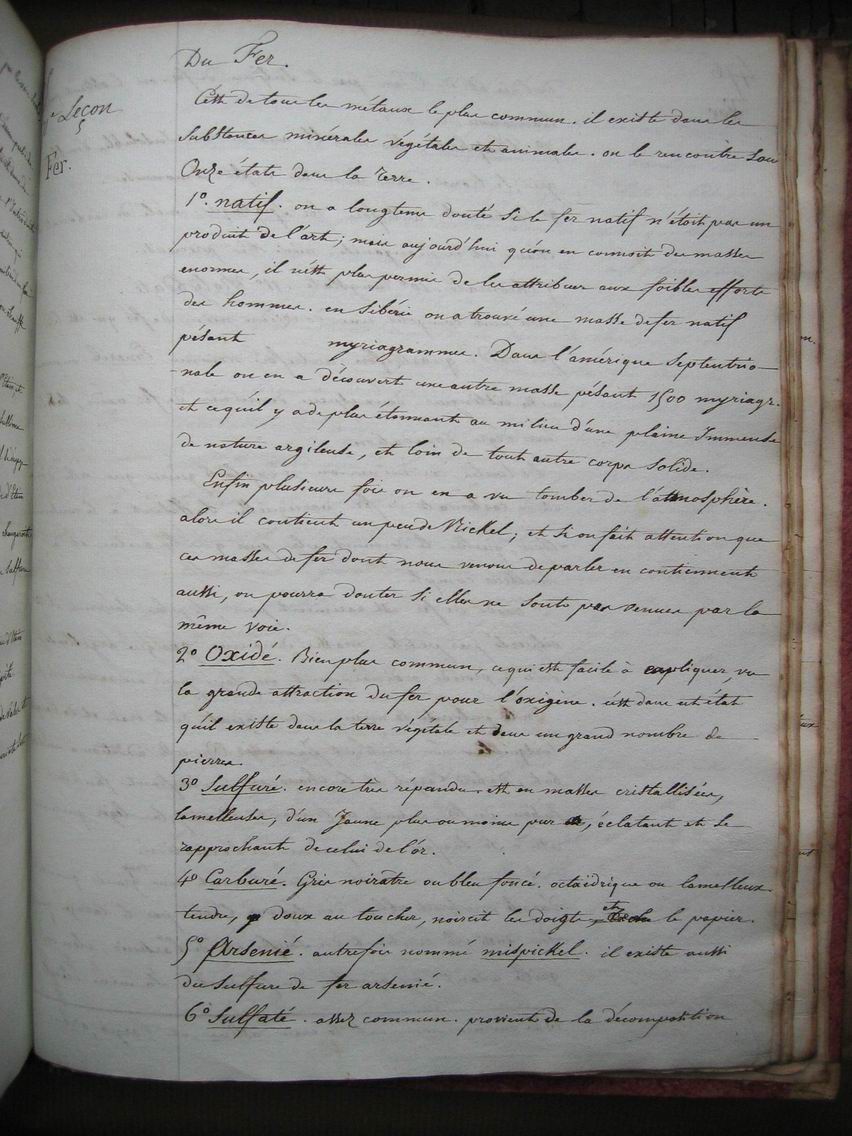 Du Fer.
Leçon
5
Fer.
C'est de tous les métaux le plus commun. il existe dans les
substances minérales végétales et animales. on le rencontre sous
Onze états dans la Terre.
1º. natif. on a longtems douté si le fer natif n'étoit pas un
produit de l'art; mais aujourd'hui qu'on en connoit des masses
enormes, il n'est plus permis de les attribuer aux foibles efforts
des hommes. en Sibérie on a trouvé une masse de fer natif
pésant myriagrammes. Dans l'amérique Septentrio-
nale on en a découvert une autre masse pésant 1500 myriagr.
et ce qu'il y a de plus étonnant au milieu d'une plaine Immense
de nature argileuse, et loin de tout autre corps solide.
Enfin plusieurs fois on en a vu tomber de l'atmosphère.
alors il contient un peu de Nickel; et si on fait attention que
ces masses de fer dont nous venons de parler en contiennent
aussi, on pourra douter si elles ne sont pas venues par la
même voie.
2º Oxidé. Bien plus commun, ce qui est facile à expliquer vu
la grande attraction du fer pour l'oxigène. c'est dans cet état
qu'il existe dans la terre végétale et dans un grand nombre de
pierres.
3º Sulfuré. encore très répandu. est en masses cristallisées,
lamelleuses, d'un Jaune plus ou moins pur, éclatant et se
rapprochant de celui de l'or.
4º Carburé. Gris noirâtre ou bleu foncé. octaédrique ou lamelleux.
tendre, doux au toucher, noircit les doigts et le papier.
5º Arsenié. autrefois nommé mispickel. il existe aussi
du sulfure de fer arsenié.
6º Sulfaté. assez commun. provient de la décomposition